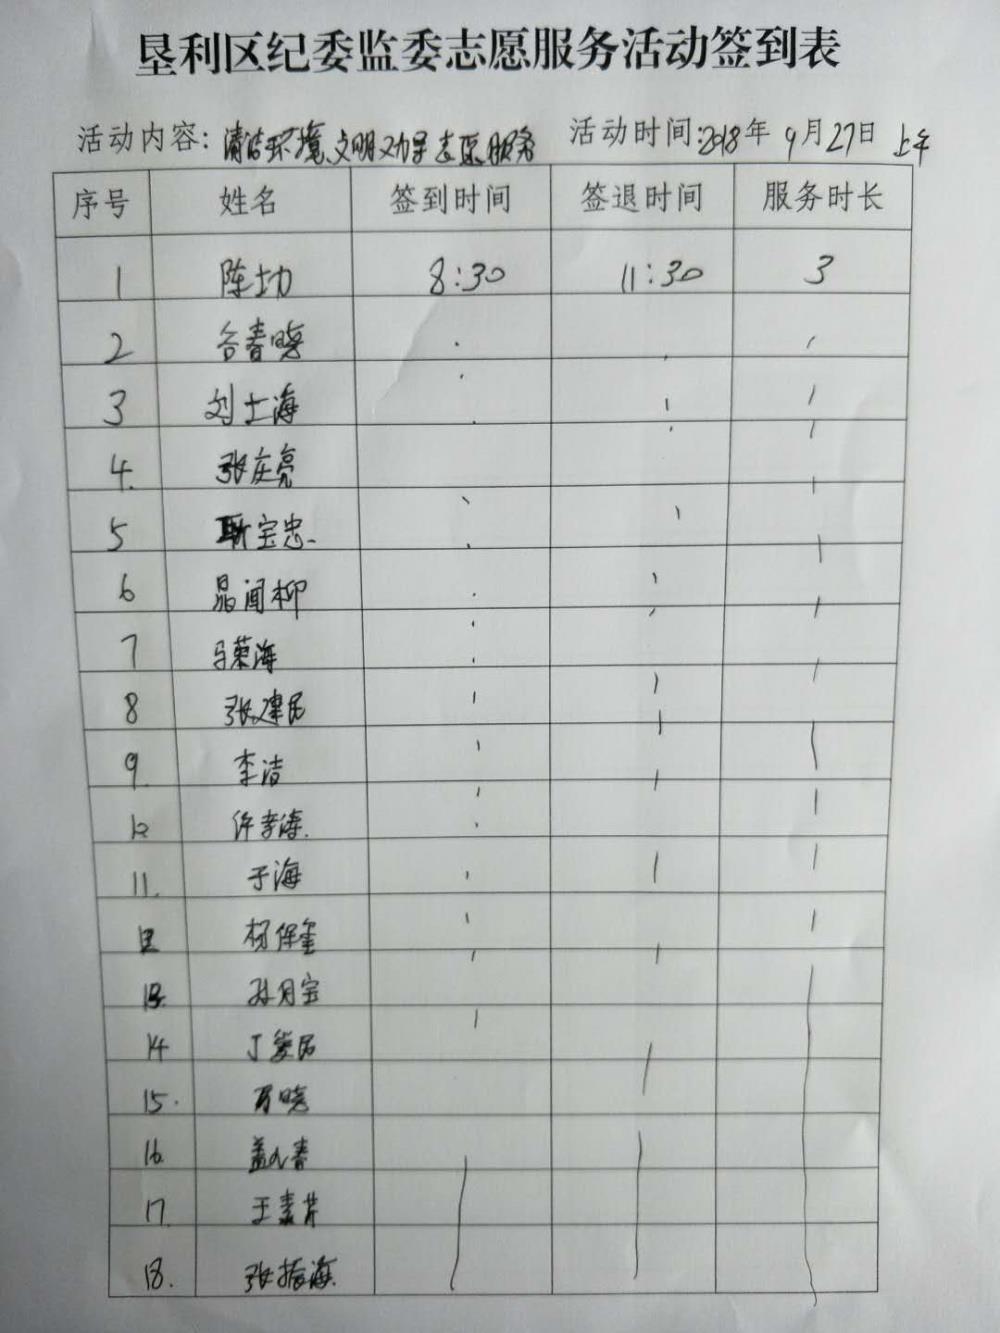 垦利区纪委监委志愿服务活动签到表
活动内容: 清洁环境、文明劝导志愿服务 活动时间: 2018年 9月27日 上午
序号 姓名 签到时间 签退时间 服务时长
1 陈功 8:30 11:30 3
2 谷春晓
3 刘士海
4. 张庆亮
5 耿宝忠
6
7 马荣海
8 张建民
9. 李洁
10 许孝涛
11. 于海
12 杨保奎
13. 孙月宝
14
15.
16
17. 王素芹
18. 张振海